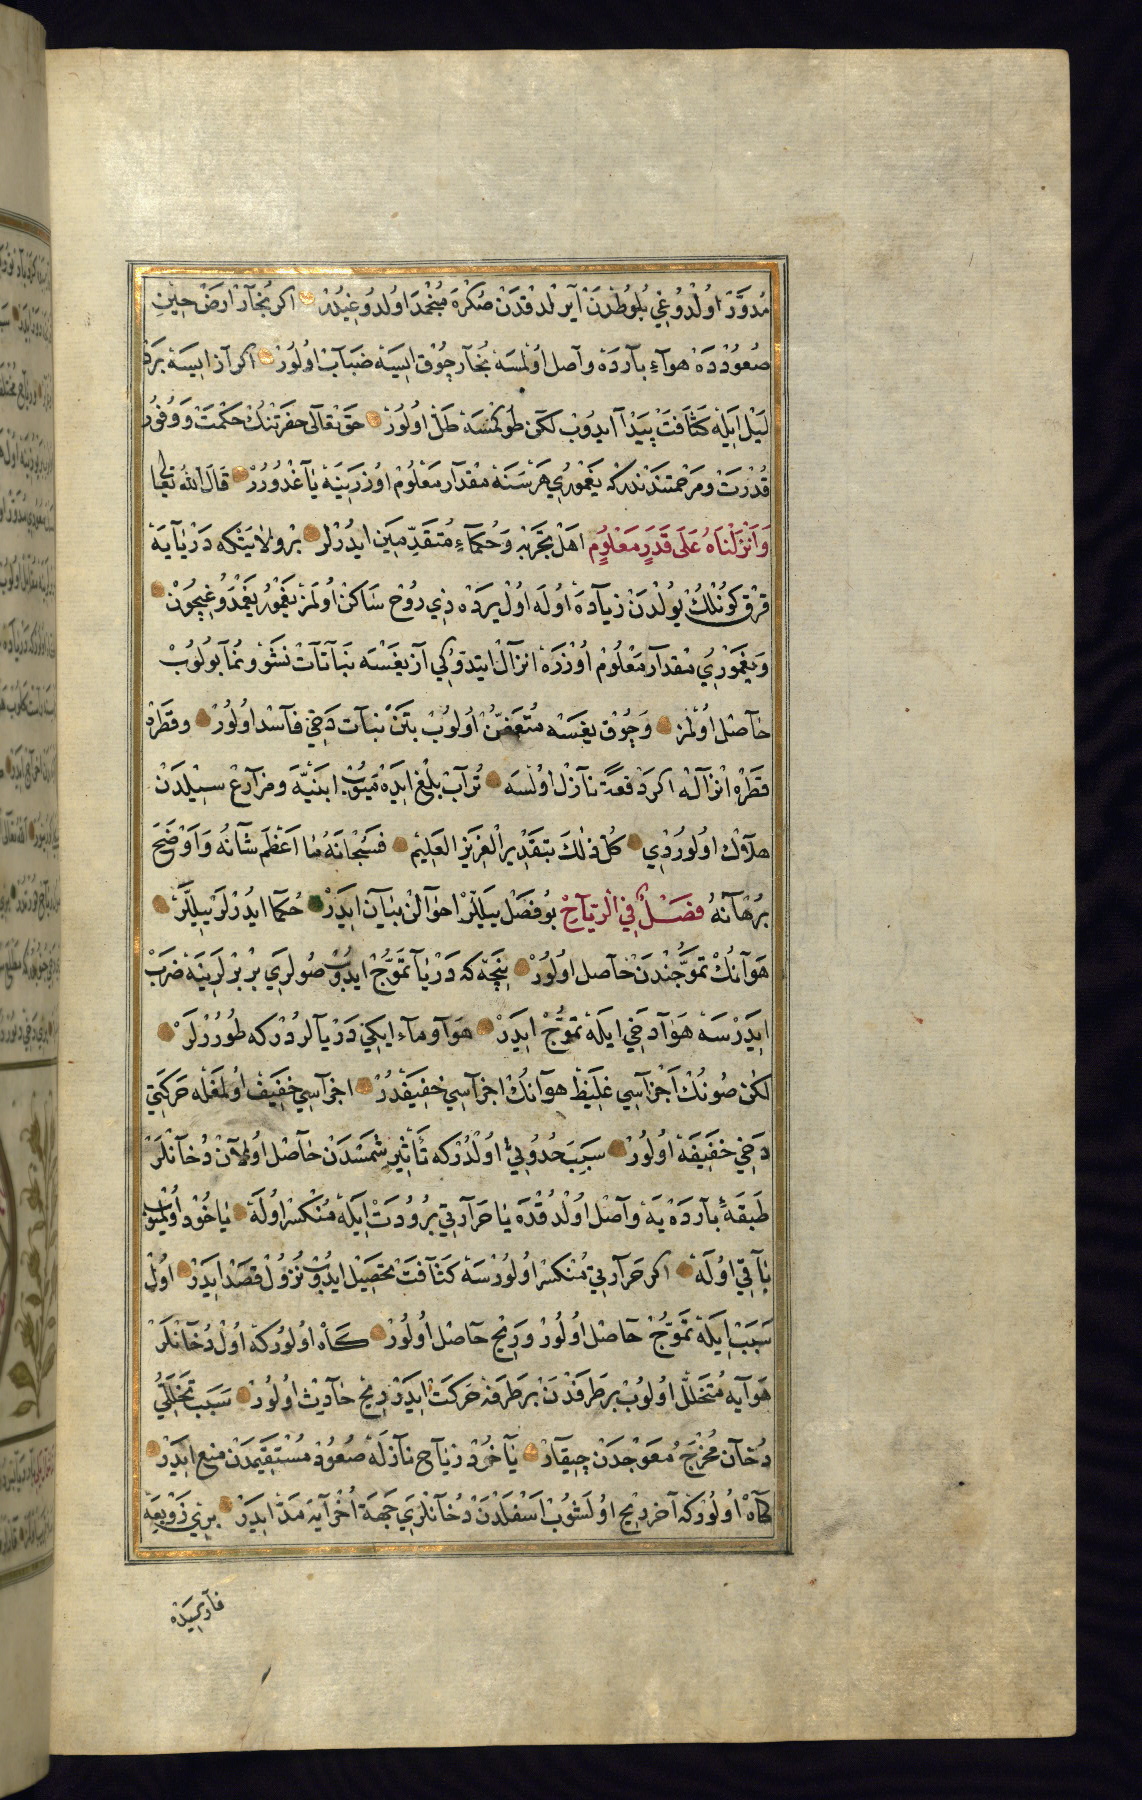 مدور اولدوغي بلوطدن آيرلدقدن صكره منجمد اولدوغيدر اكر بخار ارض حين
صعودده هواء بارده واصل اولمسه بخار چوق ايسه ضباب اولور اكر آز ايسه برد
ليل ايله كثافت پيدا ايدوب لكن طوكمسه طل اولور حق تعالى حضرتنك حكمت ووفور
قدرت ومرحمتندندركه يغموري هر سنه مقدار معلوم اوزرينه ياغدورر قال الله تعالى
وانزلناه على قدر معلوم اهل تجربه وحكماء متقدمين ايدرلر بر ولايتكه دريايه
قرق كونلك يولدن زياده اوله اول يرده ذي روح ساكن اولمز يغمور يغمدوغيچون
ويغموري مقدار معلوم اوزره انزال ايتدوكي آز يغسه نباتات نشو ونما بولوب
حاصل اولمز وچوق يغسه متعفن اولوب بتن نبات دخي فاسد اولور وقطره
قطره انزالنه اكر دفعة نازل اولسه تراب بلغ ايده ميوب ابنيه ومزارع سيلدن
هلاك اولوردي كل ذلك بتقدير العزيز العليم فسبحانه ما اعظم شانه واوضح
برهانه فصل في الرياح بو فصل ييللر احوالن بيان ايدر حكما ايدرلر ييللر
هوانك تموجندن حاصل اولور نيجه كه دريا تموج ايدوب صولري بر برلرينه ضرب
ايدرسه هوا دخي ايله تموج ايدر هوا وماء ايكي دريالردركه طوررلر
لكن صونك اجزاسي غليظ هوانك اجزاسي خفيفدر اجزاسي خفيف اولمغله حركتي
دخي خفيفه اولور سبب حدوثي اولدركه تأثير شمسدن حاصل اولان دخانلر
طبقۀ بارده يه واصل اولدقده يا حرارتي برودت ايله منكسر اوله ياخود اولميوب
باقي اوله اكر حرارتي منكسر اولورسه كثافت تحصيل ايدوب نزول قصد ايدر اول
سبب ايله تموج حاصل اولور وريح حاصل اولور كاه اولوركه اول دخانلر
هوايه متخلل اولوب بر طرفدن بر طرفه حركت ايدر ريح حاديث اولور سبب تخللي
دخان مخرج معوجدن چيقار ياخود رياح نازله صعود مستقيمدن منع ايدر
كاه اولوركه آخر ريح اولشوب اسفلدن دخانلري جهة اخرايه مد ايدر بري زوبعه
فارسيده